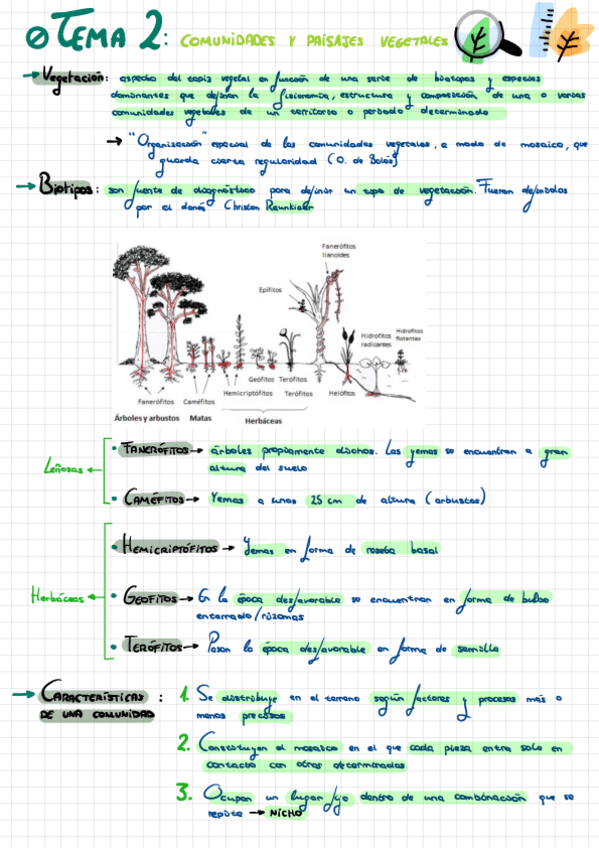 TEMA 2: COMUNIDADES Y PAISAJES VEGETALES
→ Vegetación: aspecto del tapiz vegetal en función de una serie de biotopos y especies
dominantes que definen la fisionomía, estructura y composición de una o varias
comunidades vegetales de un territorio o periodo determinado
→ "Organización" espacial de las comunidades vegetales, a modo de mosaico, que
guarda cierta regularidad (O. de Bolós)
→ Biotipos: son fuente de diagnóstico para definir un tipo de vegetación. Fueron definidos
por el danés Christen Raunkiaer
Fanerófitos
lianoides
Epífitos
Hidrofitos
radicantes
Hidrofitos
flotantes
Geófitos Terófitos
Fanerófitos Caméfitos Hemicriptófitos Terófitos Helófitos
Árboles y arbustos Matas Herbáceas
Leñosas ←
• FANERÓFITOS → árboles propiamente dichos. Las yemas se encuentran a gran
altura del suelo
• CAMÉFITOS → Yemas a unos 25 cm de altura (arbustos)
Herbáceas ←
• HEMICRIPTÓFITOS → Yemas en forma de roseta basal
• GEOFITOS → En la época desfavorable se encuentran en forma de bulbo
enterrado/rizomas
• TERÓFITOS → Pasan la época desfavorable en forma de semilla
→ CARACTERÍSTICAS
DE UNA COMUNIDAD :
1. Se distribuye en el terreno según factores y procesos más o
menos precisos
2. Constituyen el mosaico en el que cada pieza entra solo en
contacto con otras determinadas
3. Ocupan un lugar fijo dentro de una combinación que se
repite → NICHO